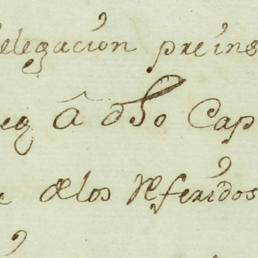 elegacion preins
eg â dho Cap
delos referidos